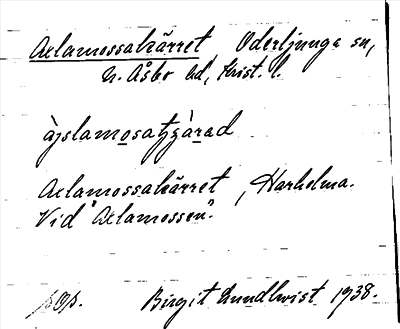 Axlamossakärret, Oderljunga sn,
N. Åsbo hd, Krist. l.
Axlamossakärret, Harholma.
Vid "Axlamossen".
pop. Birgit Lundkvist 1938.